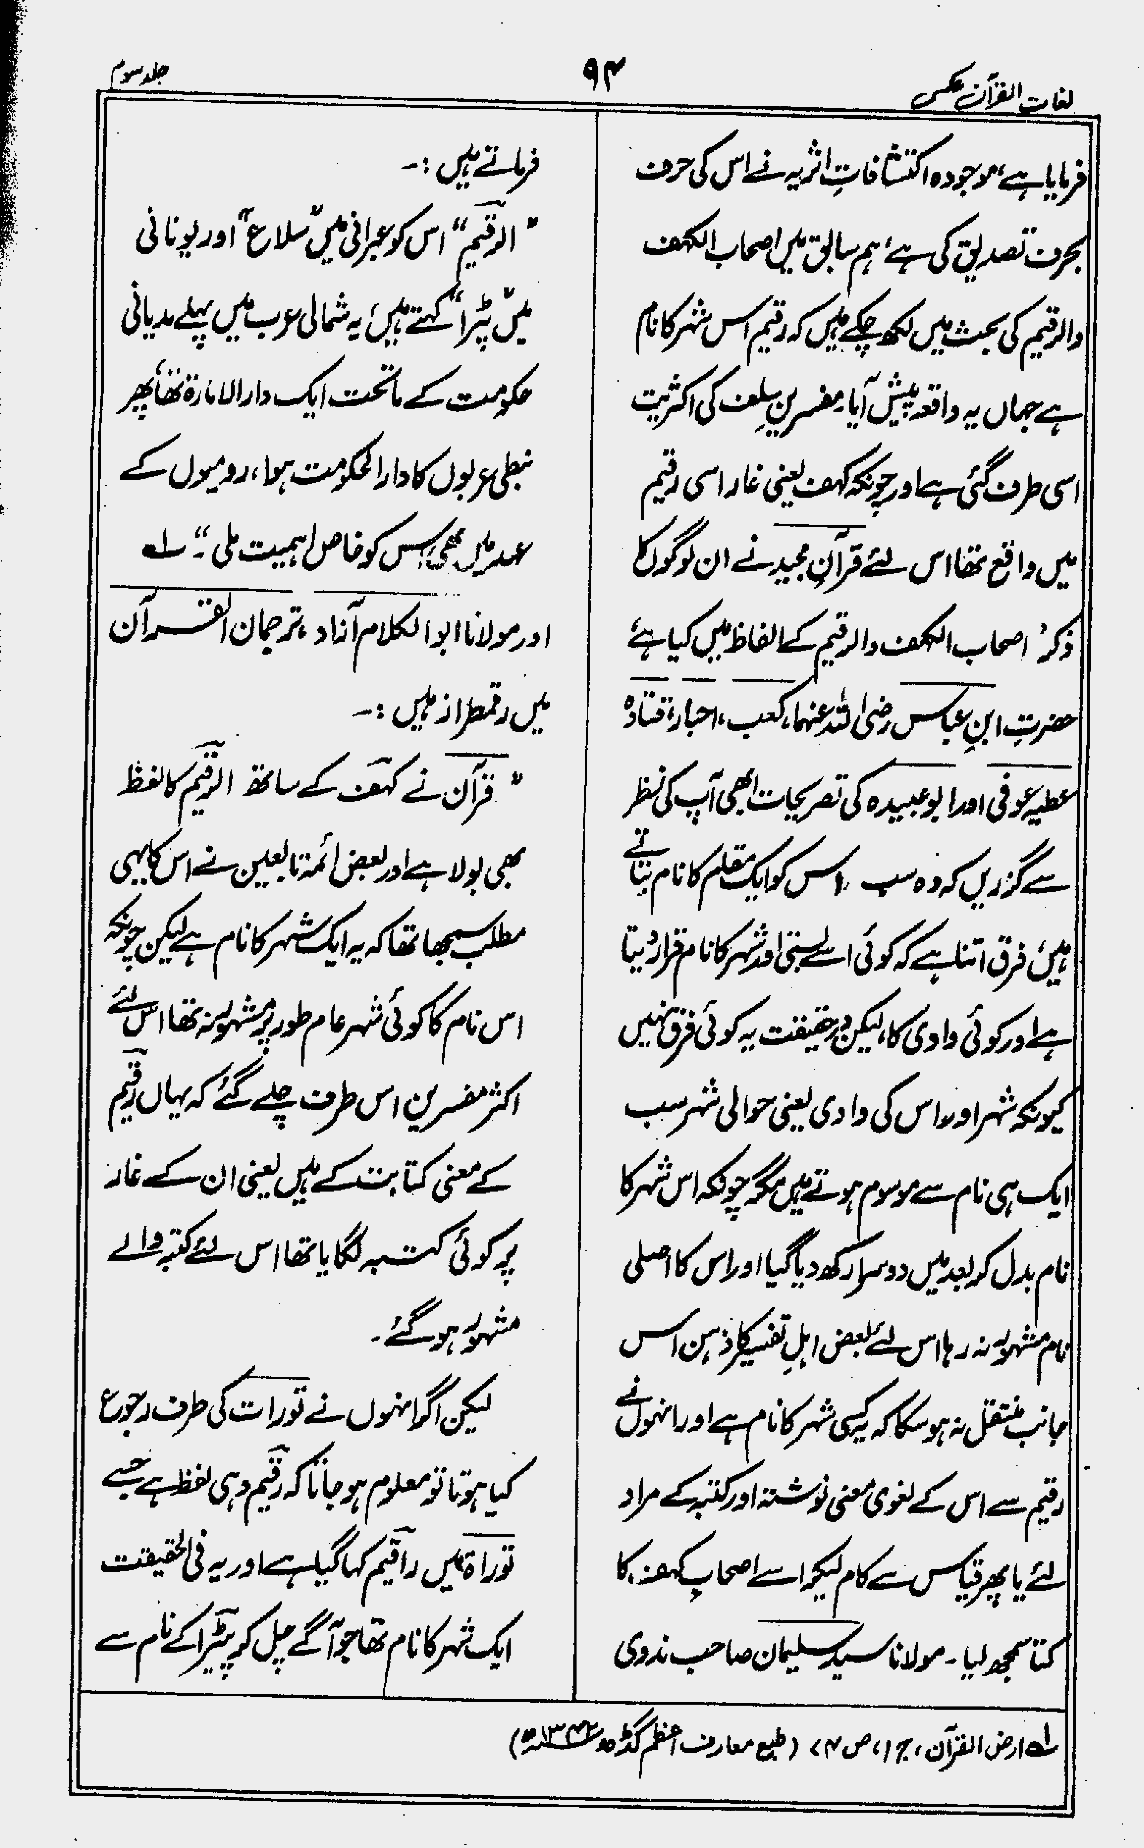 لغات القرآن عکسی
۹۴
جلد سوم
فرمایا ہے، موجودہ اکتشافاتِ اثریہ نے اس کی حرف
بحرف تصدیق کی ہے، ہم سابق میں اصحاب الکہف
والرقیم کی بحث میں لکھ چکے ہیں کہ رقیم اس شہر کا نام
ہے جہاں یہ واقعہ پیش آیا۔ مفسرینِ سلف کی اکثریت
اسی طرف گئی ہے اور چونکہ کہف یعنی غار اسی رقیم
میں واقع تھا اس لئے قرآن مجید نے ان لوگوں کا
ذکر اصحاب الکہف والرقیم کے الفاظ میں کیا ہے
حضرت ابنِ عباس رضی اللہ عنہما، کعب، احبار، قتادہ
عطیہ عوفی اور ابو عبیدہ کی تصریحات ابھی آپ کی نظر
سے گزریں کہ وہ سب اس کو ایک مقام کا نام بتاتے
ہیں، فرق اتنا ہے کہ کوئی اسے بستی اور شہر کا نام قرار دیتا
ہے اور کوئی وادی کا، لیکن درحقیقت یہ کوئی فرق نہیں
کیونکہ شہر اور اس کی وادی یعنی حوالی شہر سب
ایک ہی نام سے موسوم ہوتے ہیں مگر چونکہ اس شہر کا
نام بدل کر بعد میں دوسرا رکھ دیا گیا اور اس کا اصلی
نام مشہور نہ رہا اس لئے بعض اہلِ تفسیر کا ذہن اس
جانب منتقل نہ ہو سکا کہ یہ کسی شہر کا نام ہے اور انہوں نے
رقیم سے اس کے لغوی معنی نوشتہ اور کتبہ کے مراد
لئے یا پھر قیاس سے کام لیکر اسے اصحابِ کہف کا
کتا سمجھ لیا۔ مولانا سید سلیمان صاحب ندوی
فرماتے ہیں :۔
" الرقیم " اس کو عبرانی میں "سلاع" اور یونانی
میں "پٹرا" کہتے ہیں، یہ شمالی عرب میں پہلے مدیانی
حکومت کے ماتحت ایک دارالامارۃ تھا، پھر
نبطی عربوں کا دارالحکومت ہوا، رومیوں کے
عہد میں بھی اس کو خاص اہمیت ملی۔" لہ
اور مولانا ابوالکلام آزاد ، ترجمان القرآن
میں رقمطراز ہیں :۔
" قرآن نے کہف کے ساتھ الرقیم کا لفظ
بھی بولا ہے اور بعض ائمۂ تابعین نے اس کا یہی
مطلب سمجھا تھا کہ یہ ایک شہر کا نام ہے لیکن چونکہ
اس نام کا کوئی شہر عام طور پر مشہور نہ تھا اس لئے
اکثر مفسرین اس طرف چلے گئے کہ یہاں رقیم
کے معنی کتابت کے ہیں یعنی ان کے غار
پر کوئی کتبہ لگایا تھا اس لئے کتبہ والے
مشہور ہو گئے۔
لیکن اگر انہوں نے تورات کی طرف رجوع
کیا ہوتا تو معلوم ہو جاتا کہ رقیم وہی لفظ ہے جسے
توراۃ میں راقیم کہا گیا ہے اور یہ فی الحقیقت
ایک شہر کا نام تھا جو آگے چل کر پیٹرا کے نام سے
لہ ارض القرآن، ج ۱، ص ۷۴ (طبع معارف اعظم گڈھ ۱۳۴۲ھ)